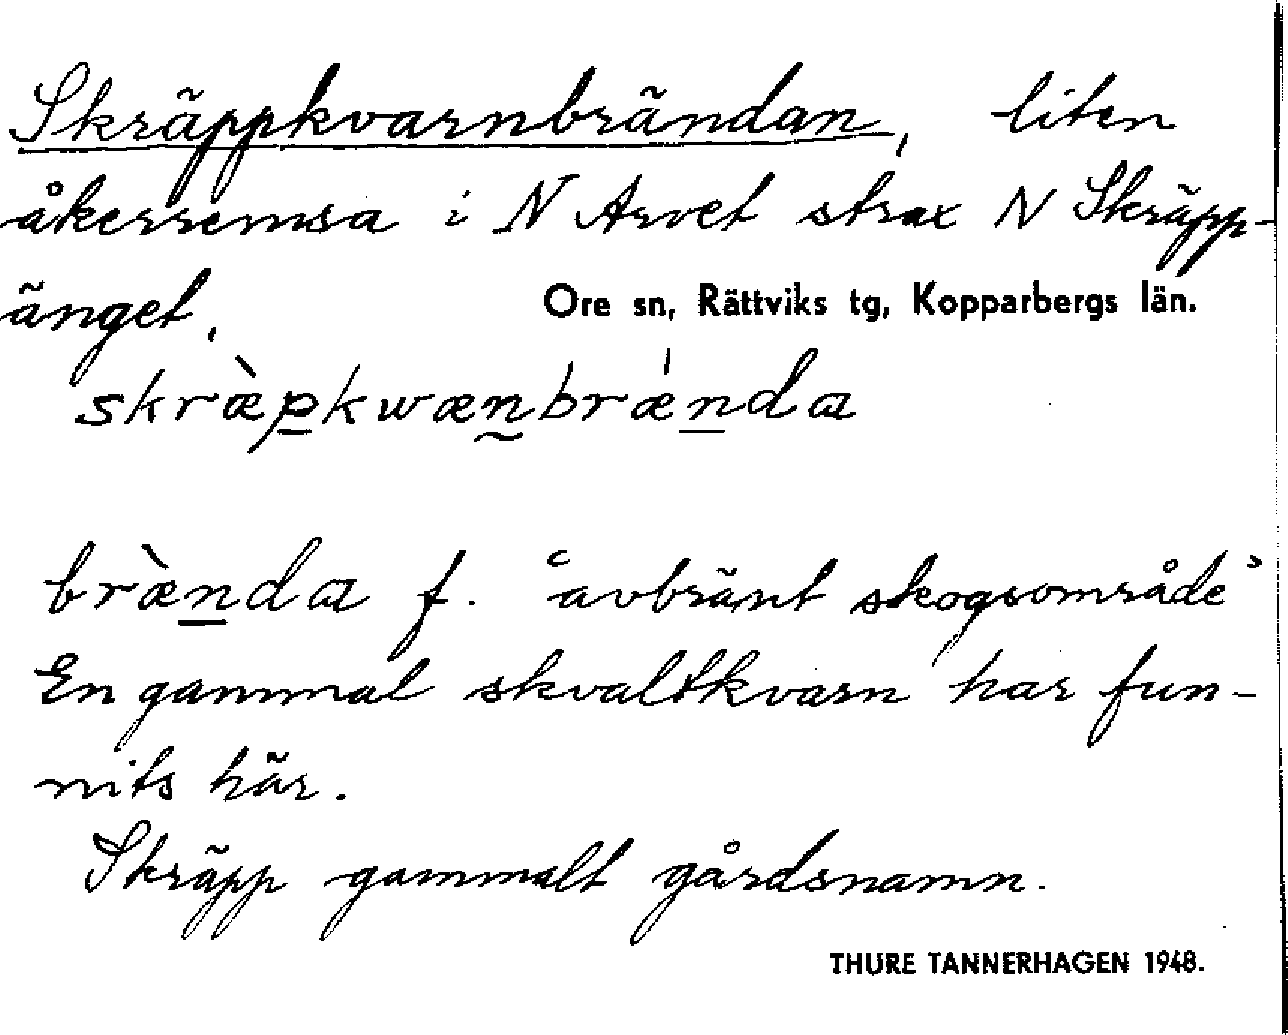 Skräppkvarnbrändan, liten
åkerremsa i N Arvet strax N Skräpp-
änget, Ore sn, Rättviks tg, Kopparbergs län.
skræ̀p̲kwæn̰bræ̍n̲da
bræ̀n̲da f. "avbränt skogsområde"
En gammal skvaltkvarn har fun-
nits här.
Skräpp gammalt gårdsnamn.
THURE TANNERHAGEN 1948.